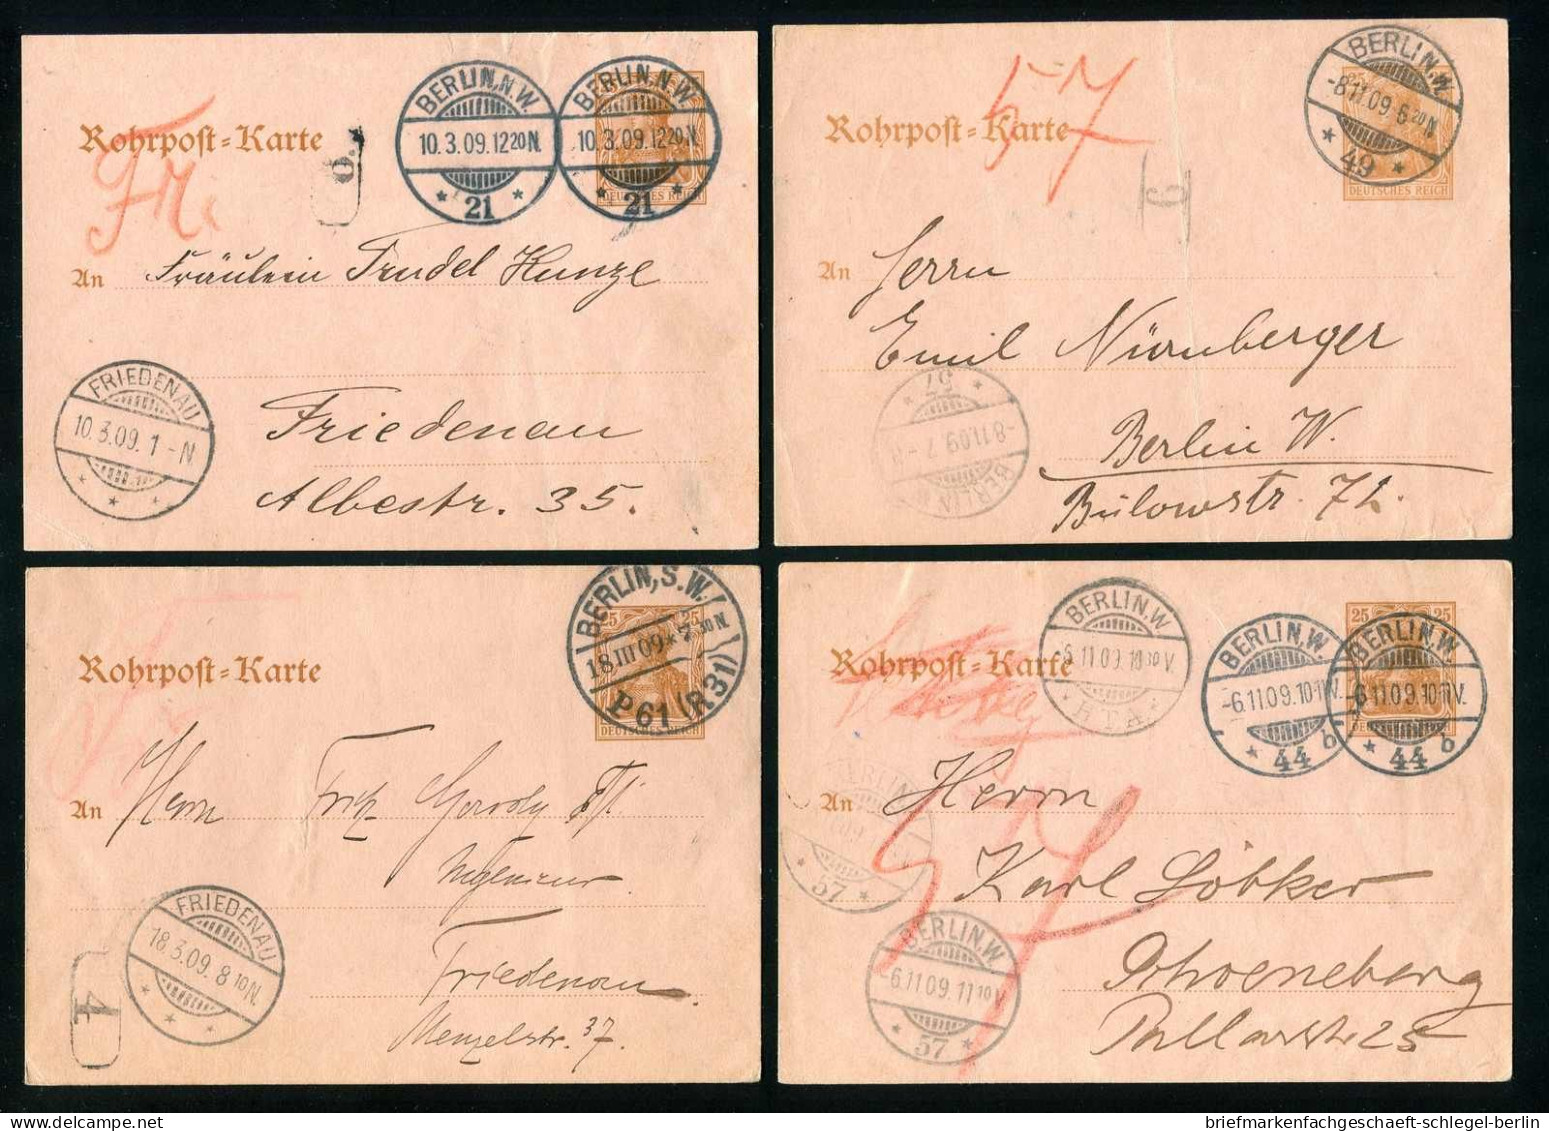 Rohrpost=Karte
Fr.
6.
BERLIN, N.W.
10.3.09.12 20 N.
* 21 *
BERLIN, N.W.
10.3.09.12 20 N.
* 21 *
DEUTSCHES REICH
An Fräulein Trudel Kunze
Friedenau
Albestr. 35.
FRIEDENAU
10.3.09. 1 - N
* * *
Rohrpost=Karte
57
6
BERLIN.W.
-8.11.09.6 20 N.
* 49 *
25
DEUTSCHES REICH
An Herrn
Emil Nürnberger
Berlin W.
Bülowstr. 72.
BERLIN
-8.11.09.7 - N
* 57 *
Rohrpost=Karte
BERLIN, S.W.
18 III 09 * 7 30 N.
P 61 (R 31)
25 25
DEUTSCHES REICH
An Herrn Fritz
Ingenieur
Friedenau
Menzelstr. 37.
FRIEDENAU
18.3.09. 8 10 N.
* * *
4
Rohrpost=Karte
BERLIN.W
-6.11.09.10 30 V.
* H.T.A. *
BERLIN.W.
-6.11.09.10-11 V.
* 44 b
BERLIN.W.
-6.11.09.10-11 V.
* 44 b
25 25
An Herrn
57
Karl Löbker
Schoeneberg
Pallasstr 25
BERLIN
* 57 *
BERLIN.W
-6.11.09.11 10 V.
* 57 *
briefmarkenfachgeschaeft-schlegel-berlin